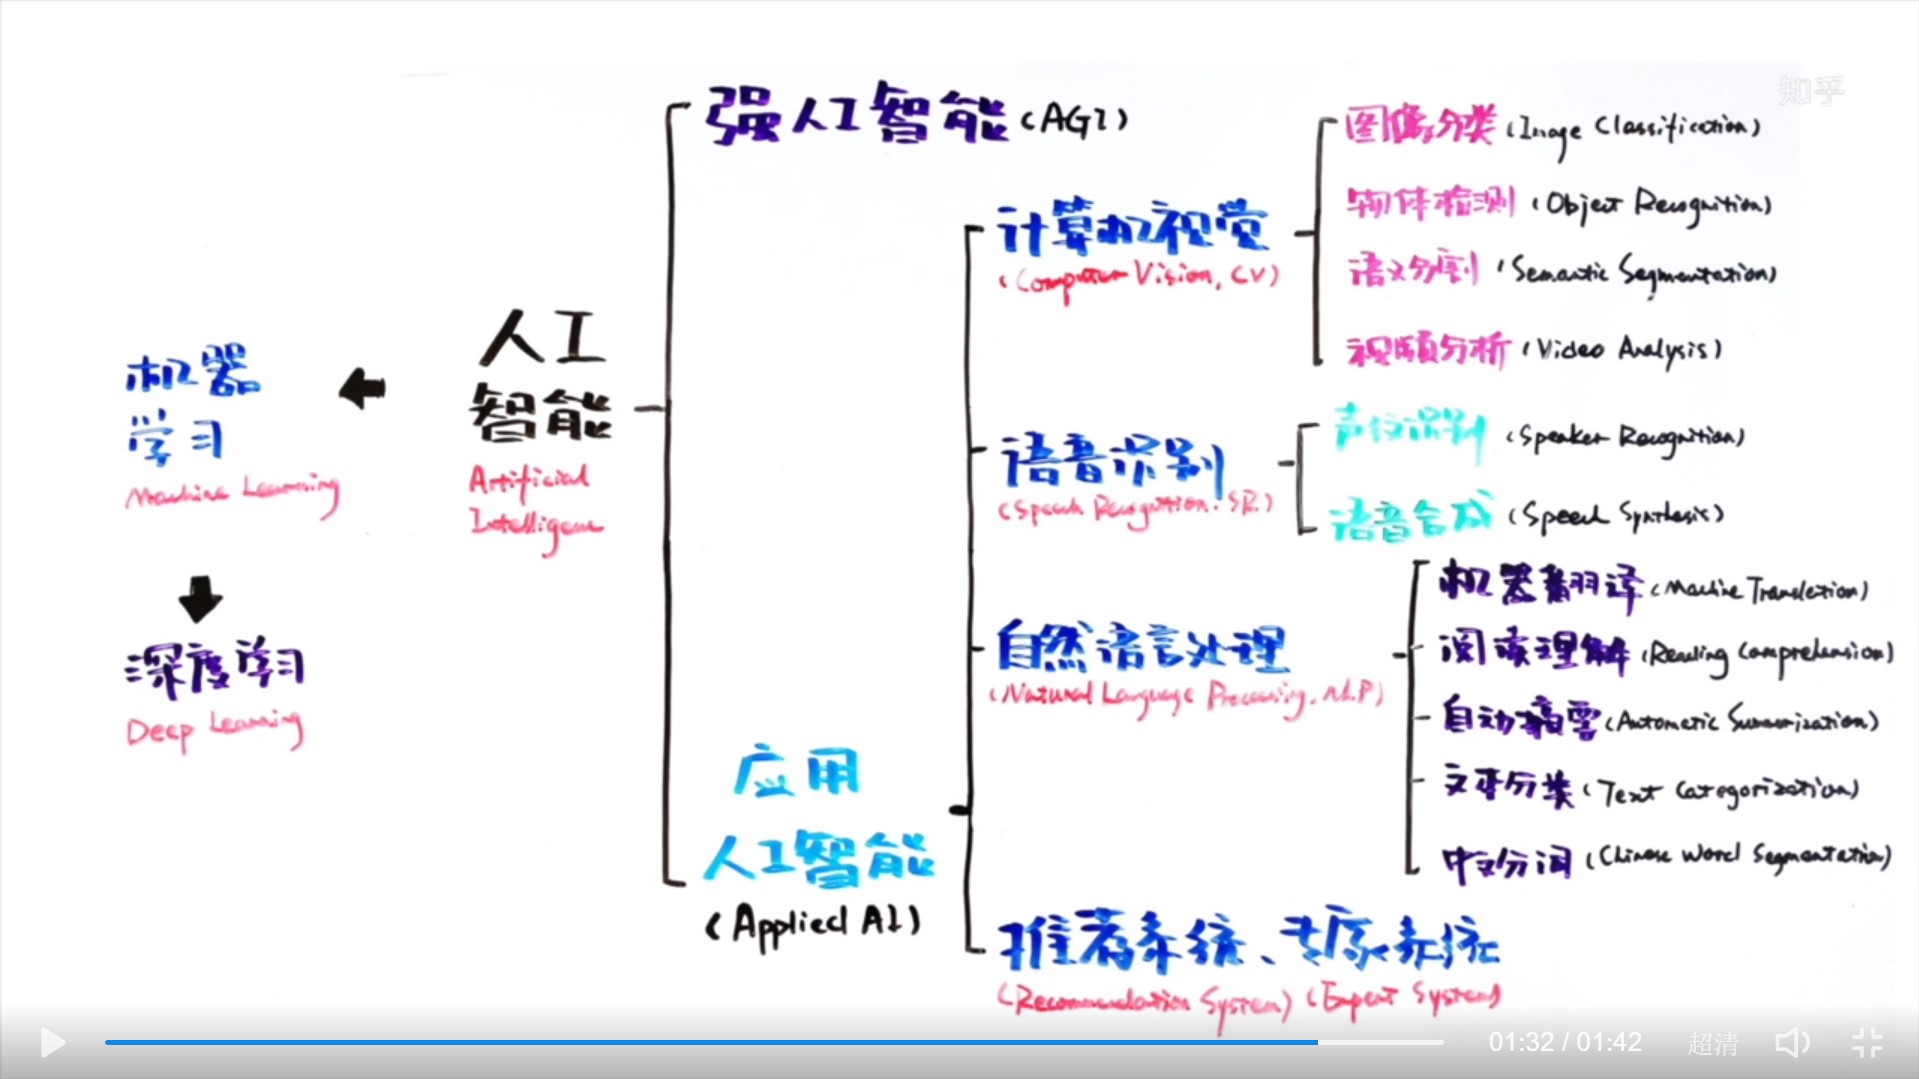 知乎
机器
学习
Machine Learning
深度学习
Deep Learning
人工
智能
Artificial
Intelligence
强人工智能 (AGI)
应用
人工智能
(Applied AI)
计算机视觉
(Computer Vision, CV)
图像分类 (Image Classification)
物体检测 (Object Recognition)
语义分割 (Semantic Segmentation)
视频分析 (Video Analysis)
语音识别
(Speech Recognition. SR.)
声纹识别 (Speaker Recognition)
语音合成 (Speech Synthesis)
自然语言处理
(Natural Language Processing, NLP)
机器翻译 (Machine Translation)
阅读理解 (Reading Comprehension)
自动摘要 (Automatic Summarization)
文本分类 (Text Categorization)
中文分词 (Chinese Word Segmentation)
推荐系统、专家系统
(Recommendation System) (Expert System)
01:32 / 01:42 超清